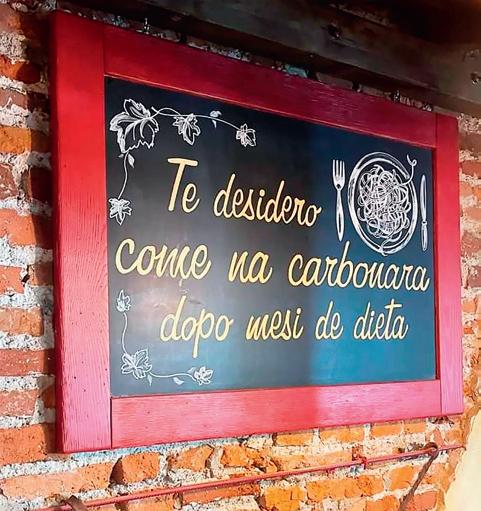 Te desidero
come na carbonara
dopo mesi de dieta